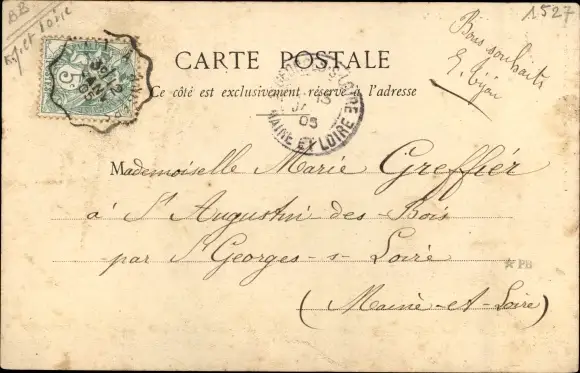 BB
1527
Bons souhaits
CARTE POSTALE
Ce côté est exclusivement réservé à l'adresse
5
MAINE ET LOIRE
05
Mademoiselle Marie Greffier
à St Augustin des Bois
par St Georges s Loire
(Maine-et-Loire)
PB